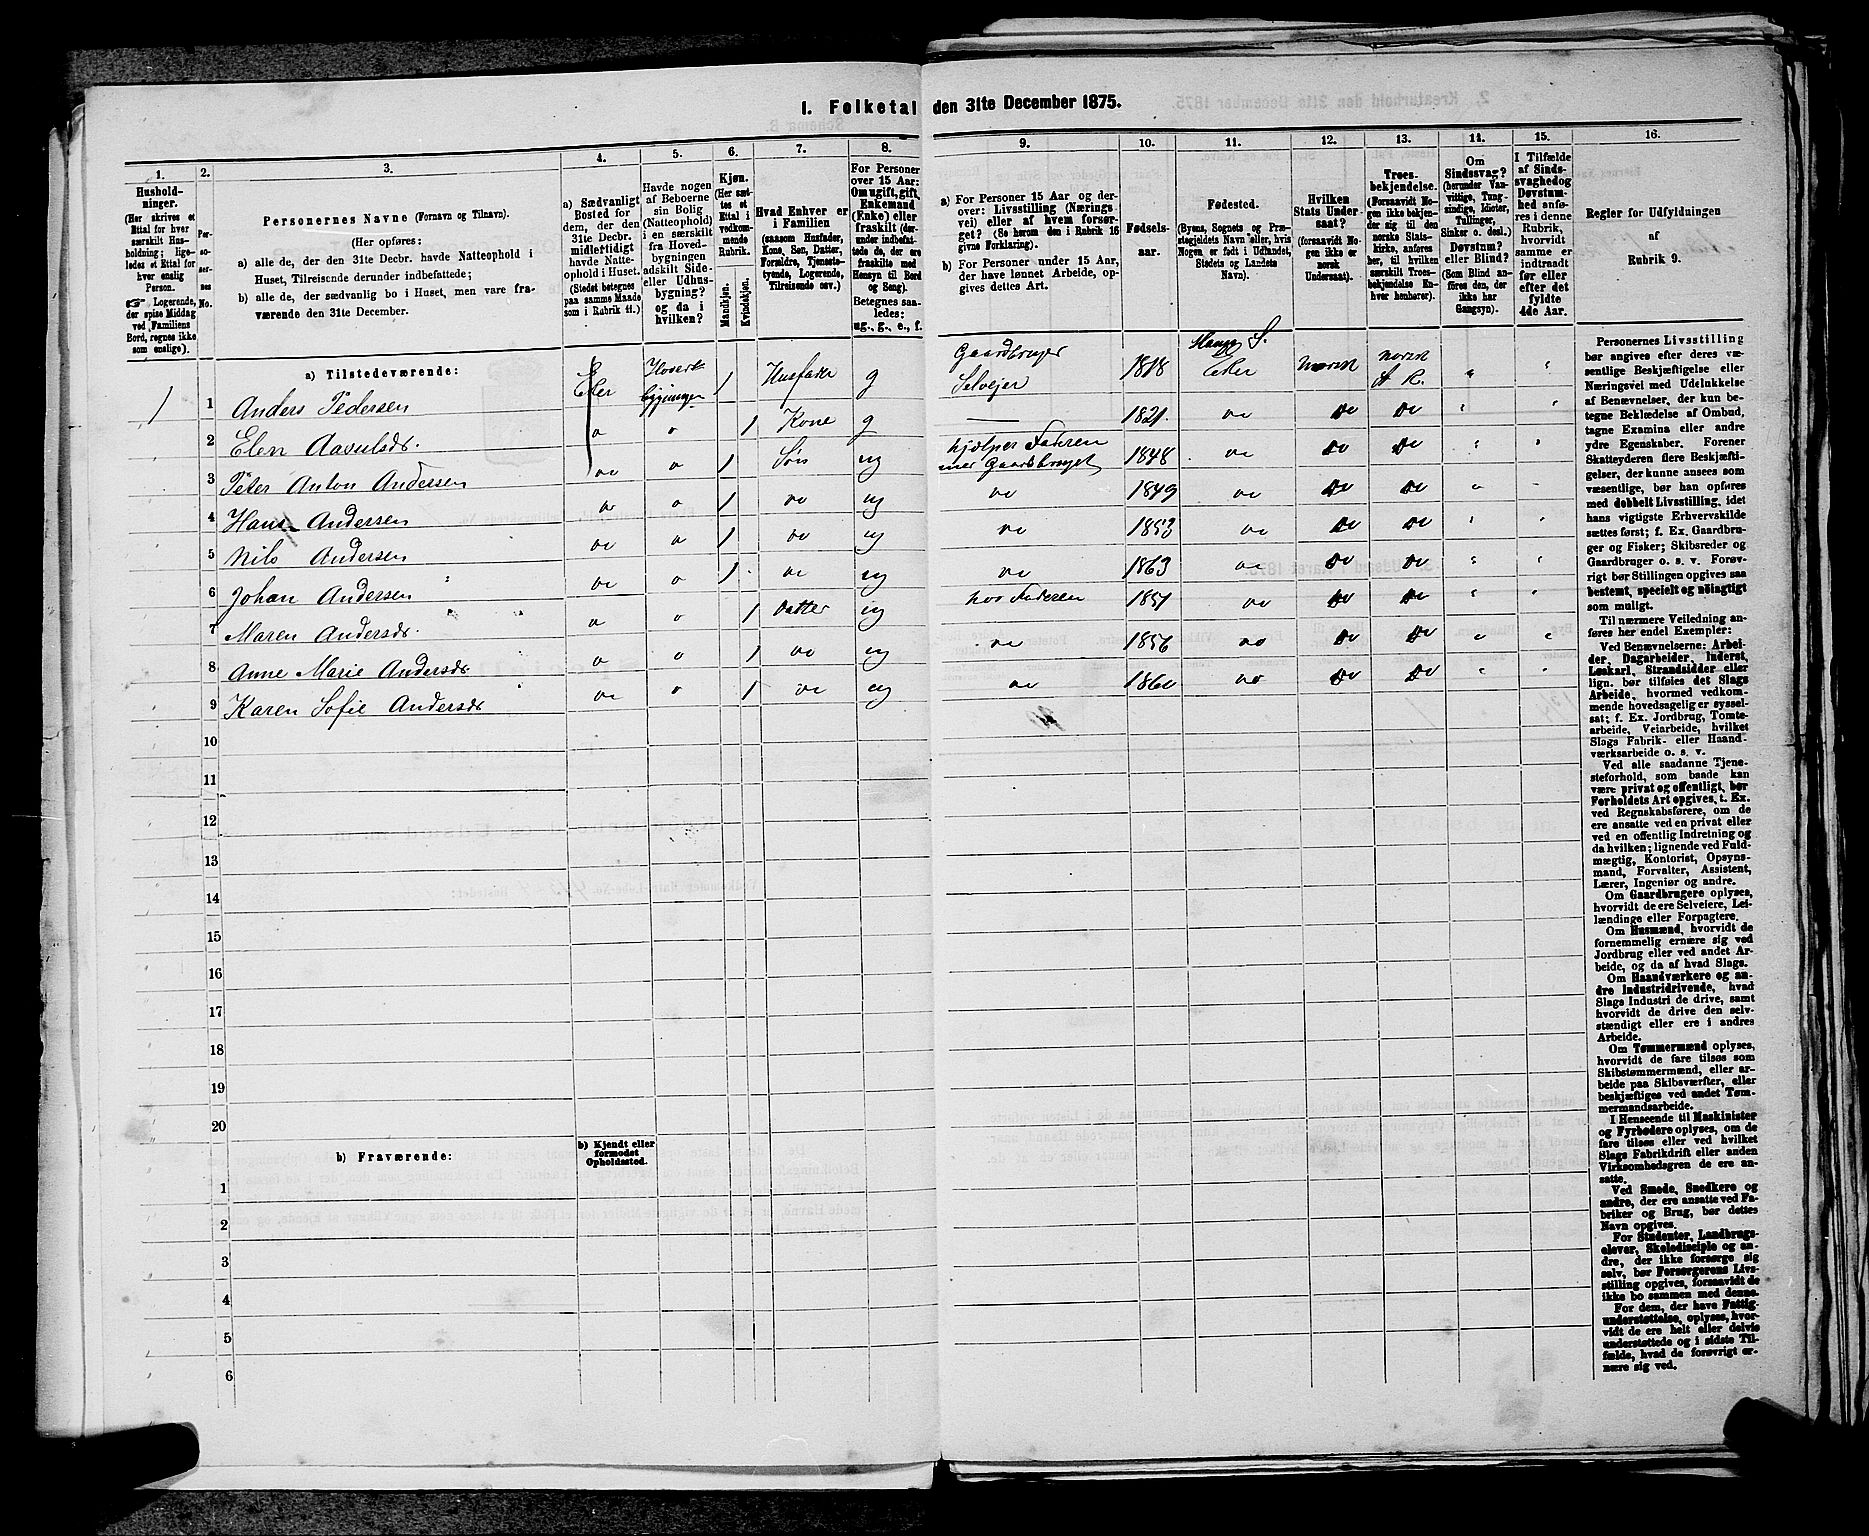 1. Folketal den 31te December 1875.
1.
Hushold-
ninger.
(Her skrives et
Ettal for hver
særskilt Hus-
holdning; lige-
ledes et Ettal for
hver enslig
Person.
☞ Logerende,
der spise Middag
ved Familiens
Bord, regnes ikke
som enslige).
2.
Per-
so-
ner-
nes
No.
3.
Personernes Navne (Fornavn og Tilnavn).
(Her opføres:
a) alle de, der den 31te Decbr. havde Natteophold i
Huset, Tilreisende derunder indbefattede;
b) alle de, der sædvanlig bo i Huset, men vare fra-
værende den 31te December.
4.
a) Sædvanligt
Bosted for
dem, der den
31te Decbr.
midlertidigt
havde Natte-
ophold i Huset.
(Stedet betegnes
paa samme Maade
som i Rubrik 11.)
5.
Havde nogen
af Beboerne
sin Bolig
(Natteophold)
i en særskilt
fra Hoved-
bygningen
adskilt Side-
eller Udhus-
bygning?
og da i
hvilken?
6.
Kjøn.
(Her sæt-
tes et
Ettal i
vedkom-
mende
Rubrik.
Mandkjøn.
Kvindekjøn.
7.
Hvad Enhver er
i Familien
(saasom Husfader,
Kone, Søn, Datter,
Forældre, Tjeneste-
tyende, Logerende,
Tilreisende osv.)
8.
For Personer
over 15 Aar:
Om ugift, gift,
Enkemand
(Enke) eller
fraskilt (der-
under indbefat-
tede de, der ere
fraskilte med
Hensyn til Bord
og Seng).
Betegnes saa-
ledes:
ug., g., e., f.
9.
a) For Personer 15 Aar og der-
over: Livsstilling (Nærings-
vei) eller af hvem forsør-
get? (Se herom den i Rubrik 16
givne Forklaring).
b) For Personer under 15 Aar,
der have lønnet Arbeide, op-
gives dettes Art.
10.
Fødsels-
aar.
11.
Fødested.
(Byens, Sognets og Præ-
stegjeldets Navn eller, hvis
Nogen er født i Udlandet,
Stedets og Landets
Navn).
12.
Hvilken
Stats Under-
saat?
(forsaavidt No-
gen ikke er
norsk
Undersaat).
13.
Troes-
bekjendelse.
(Forsaavidt No-
gen ikke bekjen-
der sig til den
norske Stats-
kirke, anføres
her, til hvilken
særskilt Troes-
bekjendelse En-
hver henhører).
14.
Om
Sindssvag?
(herunder Van-
vittige, Tung-
sindige, Idioter,
Tullinger,
Sinker o. desl.)
Døvstum?
eller Blind?
(Som Blind an-
føres den, der
ikke har
Gangsyn).
15.
I Tilfælde
af Sinds-
svaghed og
Døvstum-
hed anfø-
res i denne
Rubrik,
hvorvidt
samme er
indtraadt
før eller
efter det
fyldte
4de Aar.
16.
Regler for Udfyldningen
af
Rubrik 9.
a) Tilstedeværende:
1 1 Anders Pedersen Eker Hoved-bygningen 1 Husfader g Gaardbruger Selvejer 1818 Haug S. Eker norsk norsk St K. " "
2 Elen Aasulsdr. 1 Kone g — 1821. do do " "
3 Peter Anton Andersen 1 Søn ug hjælper Faderen med Gaardsbruget 1848 do do " "
4 Hans Andersen 1 do ug do 1849 do do " "
5 Nils Andersen 1 do ug do 1853 do do " "
6 Johan Andersen 1 do ug do 1863 do do " "
7 Maren Andersdr. 1 Datter ug hos Faderen 1851 do do " "
8 Anne Marie Andersdr 1 do ug do 1856 do do " "
9 Karen Sofie Andersdr 1 do ug do 1860 do do " "
10
11
12
13
14
15
16
17
18
19
20
b) Fraværende:
b) Kjendt eller
formodet
Opholdssted.
1
2
3
4
5
6
Personernes Livsstilling
bør angives efter deres væ-
sentlige Beskjæftigelse eller
Næringsvei med Udelukkelse
af Benævnelser, der kun be-
tegne Beklædelse af Ombud,
tagne Examina eller andre
ydre Egenskaber. Forener
Skatteyderen flere Beskjæfti-
gelser, der kunne ansees som
væsentlige, bør han opføres
med dobbelt Livsstilling, idet
hans vigtigste Erhvervskilde
sættes først; f. Ex. Gaardbru-
ger og Fisker; Skibsreder og
Gaardbruger o. s. v. Forøv-
rigt bør Stillingen opgives saa
bestemt, specielt og nøiagtigt
som muligt.
Til nærmere Veiledning an-
føres her endel Exempler:
Ved Benævnelserne: Arbei-
der, Dagarbeider, Inderst,
Løskarl, Strandsidder eller
lign. bør tilføies det Slags
Arbeide, hvormed vedkom-
mende hovedsagelig er syssel-
sat; f. Ex. Jordbrug, Tomte-
arbeide, Veiarbeide, hvilket
Slags Fabrik- eller Haand-
værksarbeide o. s. v.
Ved alle saadanne Tjene-
steforhold, som baade kan
være privat og offentligt, bør
Forholdets Art opgives, t. Ex.
ved Regnskabsførere, om de
ere ansatte ved en privat eller
ved en offentlig Indretning og
da hvilken; lignende ved Fuld-
mægtig, Kontorist, Opsyns-
mand, Forvalter, Assistent,
Lærer, Ingeniør og andre.
Om Gaardbrugere oplyses,
hvorvidt de ere Selveiere, Lei-
lændinge eller Forpagtere.
Om Husmænd, hvorvidt de
fornemmelig ernære sig ved
Jordbrug eller ved andet Ar-
beide, og da af hvad Slags.
Om Haandværkere og an-
dre Industridrivende, hvad
Slags Industri de drive, samt
hvorvidt de drive den selv-
stændigt eller ere i andres
Arbeide.
Om Tømmermænd oplyses,
hvorvidt de fare tilsøs som
Skibstømmermænd, eller ar-
beide paa Skibsværfter, eller
beskjæftiges ved andet Tøm-
mermandsarbeide.
I Henseende til Maskinister
og Fyrbødere oplyses, om de
fare tilsøs eller ved hvilket
Slags Fabrikdrift eller anden
Virksomhedsgren de ere an-
satte.
Ved Smede, Snedkere og
andre, der ere ansatte ved Fa-
briker og Brug, bør dettes
Navn opgives.
For Studenter, Landbrugs-
elever, Skoledisciple og an-
dre, der ikke forsørge sig
selv, bør Forsørgerens Livs-
stilling opgives, forsaavidt de
ikke bo sammen med denne.
For dem, der have Fattig-
understøttelse, oplyses, hvor-
vidt de ere helt eller delvis
understøttede og i sidste Til-
fælde, hvad de forøvrigt er-
nære sig ved.